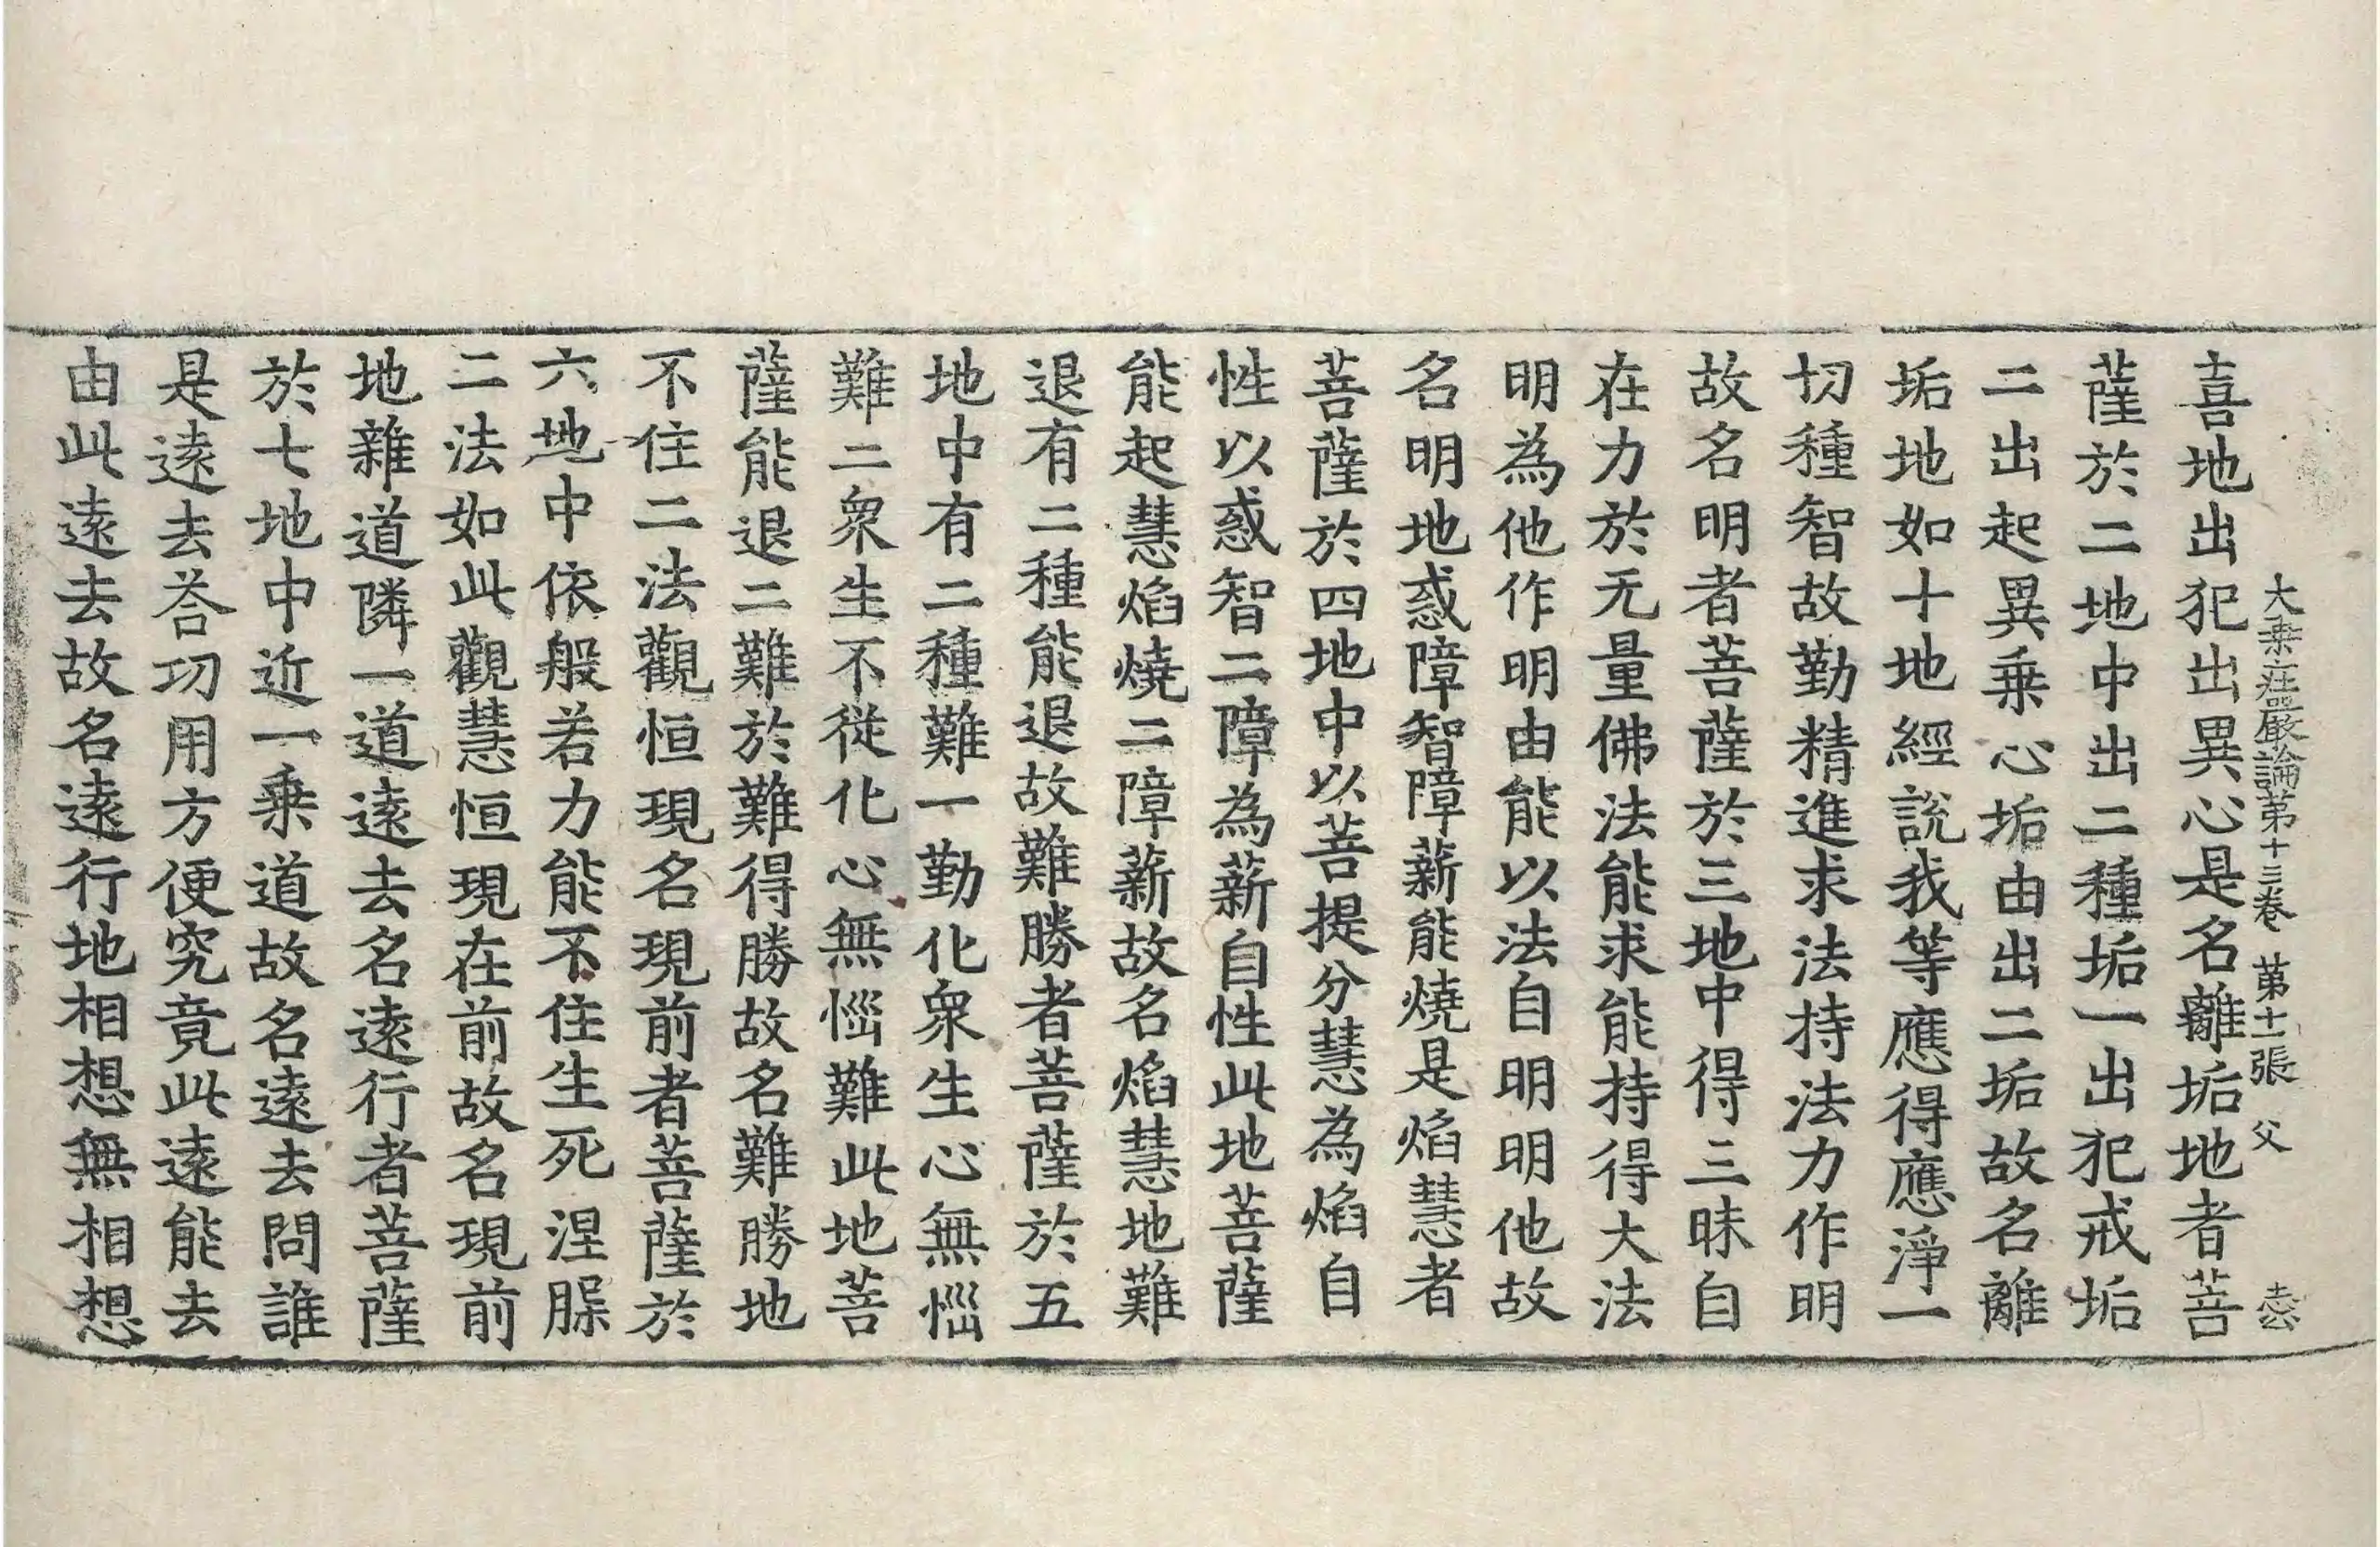 大乘莊嚴論第十三卷 第十二張 父
喜地出犯出異心是名離垢地者菩
薩於二地中出二種垢一出犯戒垢
二出起異乗心垢由出二垢故名離
垢地如十地經説我等應得應淨一
切種智故勤精進求法持法力作明
故名明者菩薩於三地中得三昧自
在力於无量佛法能求能持得大法
明為他作明由能以法自明明他故
名明地惑障智障薪能燒是焰慧者
菩薩於四地中以菩提分慧為焰自
性以惑智二障為薪自性此地菩薩
能起慧焰燒二障薪故名焰慧地難
退有二種能退故難勝者菩薩於五
地中有二種難一勤化衆生心無惱
難二衆生不從化心無惱難此地菩
薩能退二難於難得勝故名難勝地
不住二法觀恒現名現前者菩薩於
六地中依般若力能不住生死涅槃
二法如此觀慧恒現在前故名現前
地雜道隣一道遠去名遠行者菩薩
於七地中近一乗道故名遠去問誰
是遠去荅功用方便究竟此遠能去
由此遠去故名遠行地相想無相想